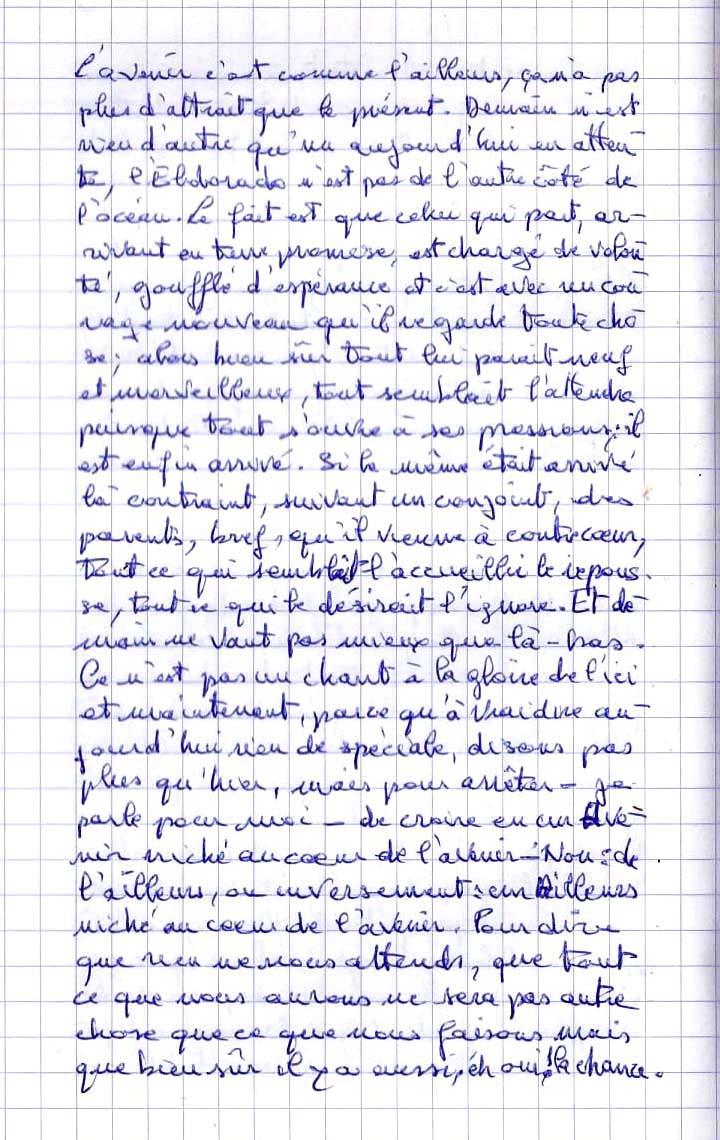 L'avenir c'est comme l'ailleurs, ça n'a pas
plus d'attrait que le présent. Demain n'est
rien d'autre qu'un aujourd'hui en atten-
te, l'Eldorado n'est pas de l'autre côté de
l'océan. Le fait est que celui qui part, ar-
rivant en terre promise, est chargé de volon
té, gonflé d'espérance et c'est avec un cou
rage nouveau qu'il regarde toute cho
se; alors bien sûr tout lui paraît neuf
et merveilleux, tout semblait l'attendre
puisque tout s'ouvre à ses pressions; il
est enfin arrivé. Si le même était arrivé
là contraint, suivant un conjoint, des
parents, bref, qu'il vienne à contrecœur,
tout ce qui semblait l'accueillir le repous-
se, tout ce qui le désirait l'ignore. Et de-
main ne vaut pas mieux que là-bas.
Ce n'est pas un chant à la gloire de l'ici
et maintenant, parce qu'à vrai dire au-
jourd'hui rien de spéciale, disons pas
plus qu'hier, mais pour arrêter - je
parle pour moi - de croire en un Ave-
nir niché au coeur de l'avenir - Non : de
l'ailleurs, ou inversement : un Ailleurs
niché au coeur de l'avenir. Pour dire
que rien ne nous attends, que tout
ce que nous aurons ne sera pas autre
chose que ce que nous faisons mais
que bien sûr il y a aussi, eh oui, la chance.